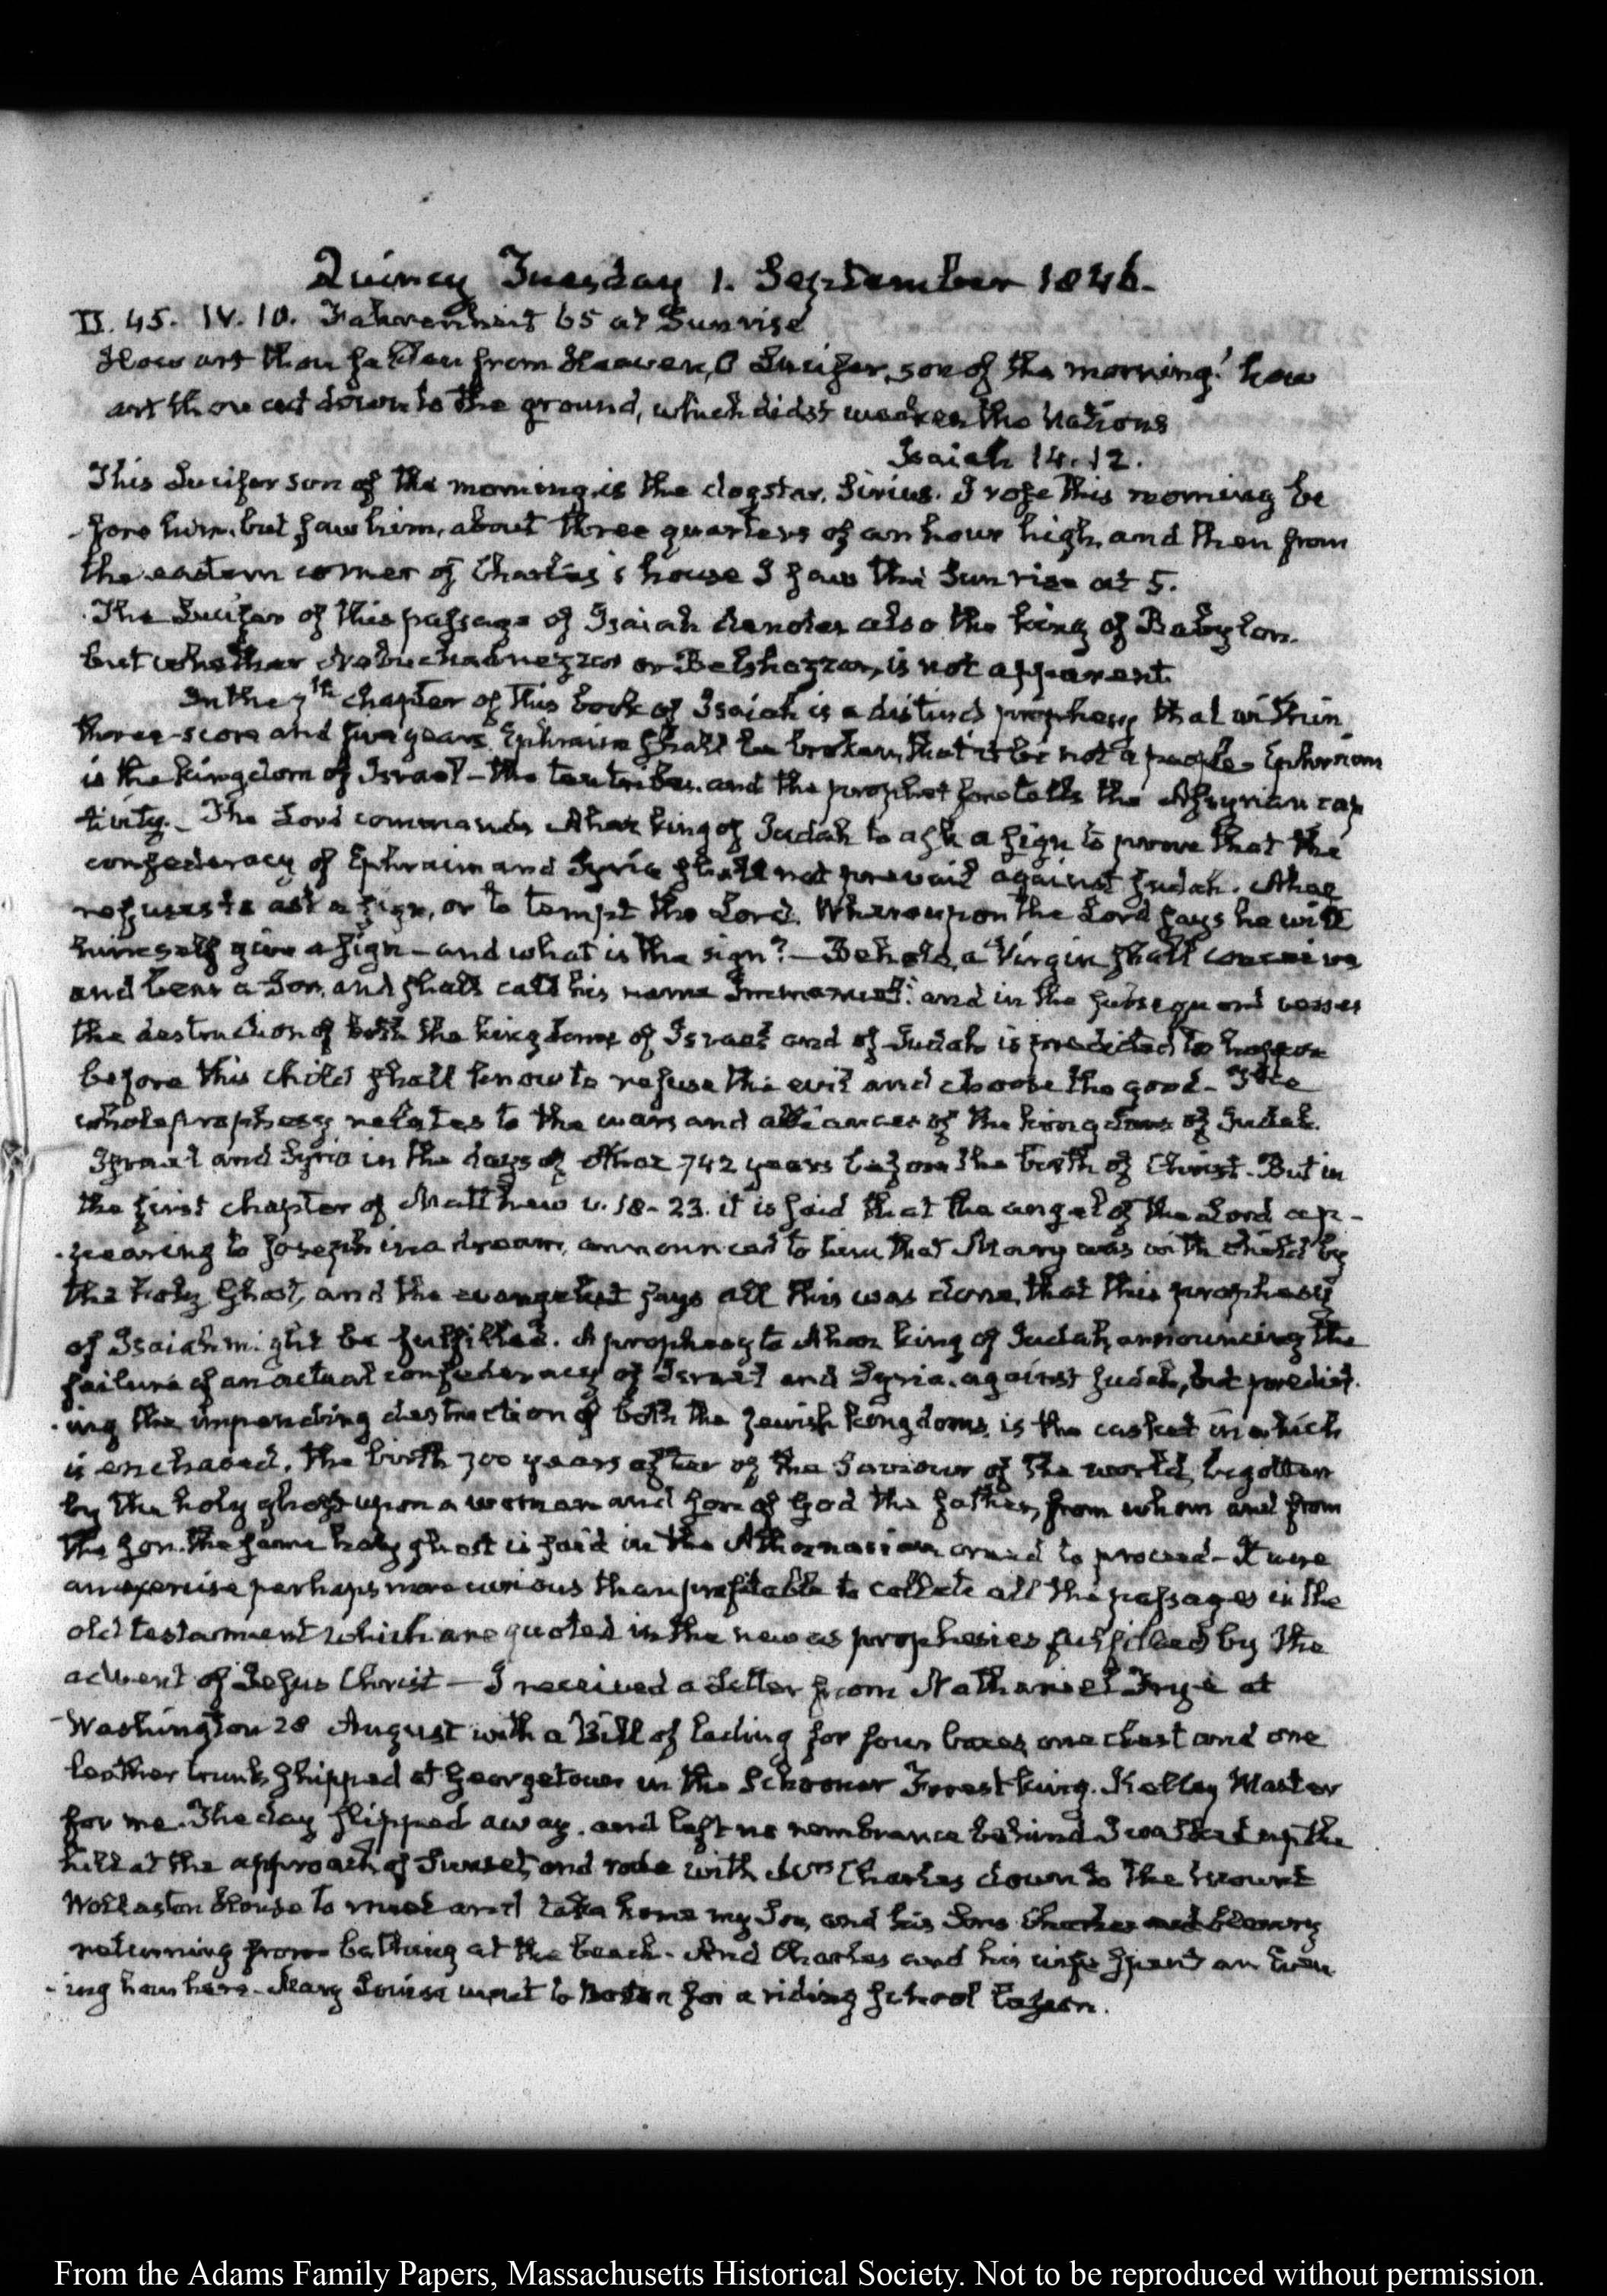 Quincy Tuesday 1. September 1846.
II. 45. IV. 10. Fahrenheit 65 at Sunrise
How art thou fallen from Heaven, O Lucifer, son of the morning! how
art thou cut down to the ground, which didst weaken the Nations
Isaiah 14.12.
This Lucifer son of the morning is the dogstar, Sirius. I rose this morning be
-fore him, but saw him, about three quarters of an hour high, and then from
the eastern corner of Charles's house I saw the Sun rise at 5.
The Lucifer of this passage of Isaiah denotes also the king of Babylon.
but whether Nebuchadnezzar or Belshazzar, is not apparent.
In the 7th chapter of this book of Isaiah is a distinct prophesy that within
three-score and five years Ephraim shall be broken, that it be not a people. Ephraim
is the kingdom of Israel - the ten tribes. and the prophet foretells the Assyrian cap
tivity. - The Lord commands Ahaz king of Judah to ask a sign to prove that the
confederacy of Ephraim and Syria shall not prevail against Judah. Ahaz
refuses to ask a sign, or to tempt the Lord. Whereupon the Lord says he will
himself give a sign - and what is the sign? - Behold, a Virgin shall conceive
and bear a Son, and shall call his name Immanuel: and in the subsequent verses
the destruction of both the kingdoms of Israel and of Judah is predicted to happen
before this child shall know to refuse the evil and choose the good - The
whole prophesy relates to the wars and alliances of the kingdoms of Judah.
Israel and Syria in the days of Ahaz 742 years before the birth of Christ. But in
the first chapter of Matthew v. 18-23. it is said that the angel of the Lord ap-
-pearing to Joseph in a dream, announced to him that Mary was with child by
the holy Ghost, and the evangelist says all this was done, that this prophesy
of Isaiah might be fulfilled. A prophesy to Ahaz king of Judah, announcing the
failure of an actual confederacy of Israel and Syria, against Judah, but predict-
-ing the impending destruction of both the Jewish kingdoms, is the casket in which
is enchased, the birth 700 years after of the Saviour of the world, begotten
by the holy ghost upon a woman and son of God the father, from whom and from
the son the same holy ghost is said in the Athanasian creed to proceed - It were
an exercise perhaps more curious than profitable to collate all the passages in the
old testament which are quoted in the new as prophesies fulfilled by the
advent of Jesus Christ - I received a Letter from Nathaniel Frye at
Washington 28 August with a Bill of lading for four boxes one chest and one
leather trunk shipped at Georgetown in the Schooner Forrest king. Kelley Master
for me. The day slipped away, and left no rembrance behind I walked up the
hill at the approach of Sunset, and rode with Mrs Charles down to the Mount
Wollaston House to meet and take home my Son, and his Sons
returning from bathing at the beach. And Charles and his wife spent an Even
-ing hour here. Mary Louisa went to Boston for a riding school lesson.
From the Adams Family Papers, Massachusetts Historical Society. Not to be reproduced without permission.